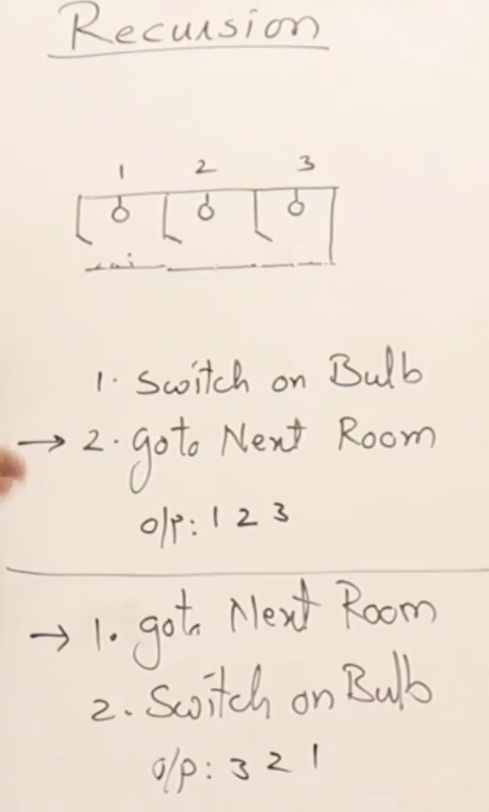 Recursion
1 2 3
1. Switch on Bulb
→ 2. goto Next Room
o/p: 1 2 3
→ 1. goto Next Room
2. Switch on Bulb
o/p: 3 2 1